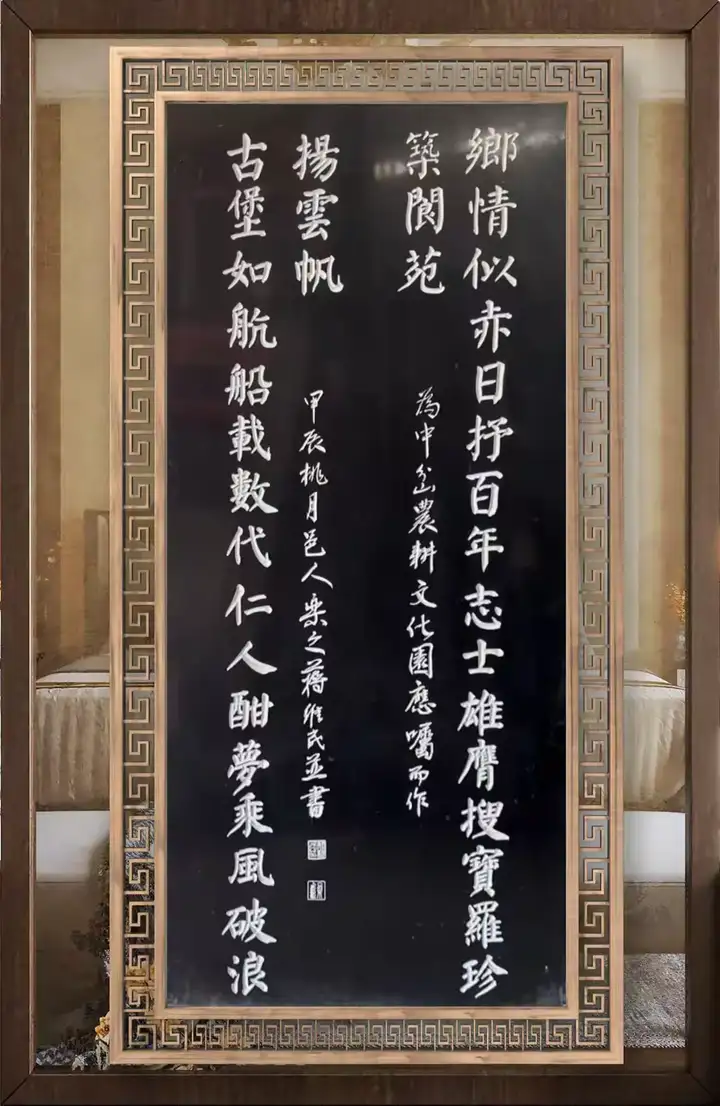 鄉情似赤日抒百年志士雄膺搜寶羅珍
築閬苑
為中岔農耕文化園應囑而作
古堡如航船載數代仁人酣夢乘風破浪
揚雲帆
甲辰桃月邑人樂之蔣維民並書